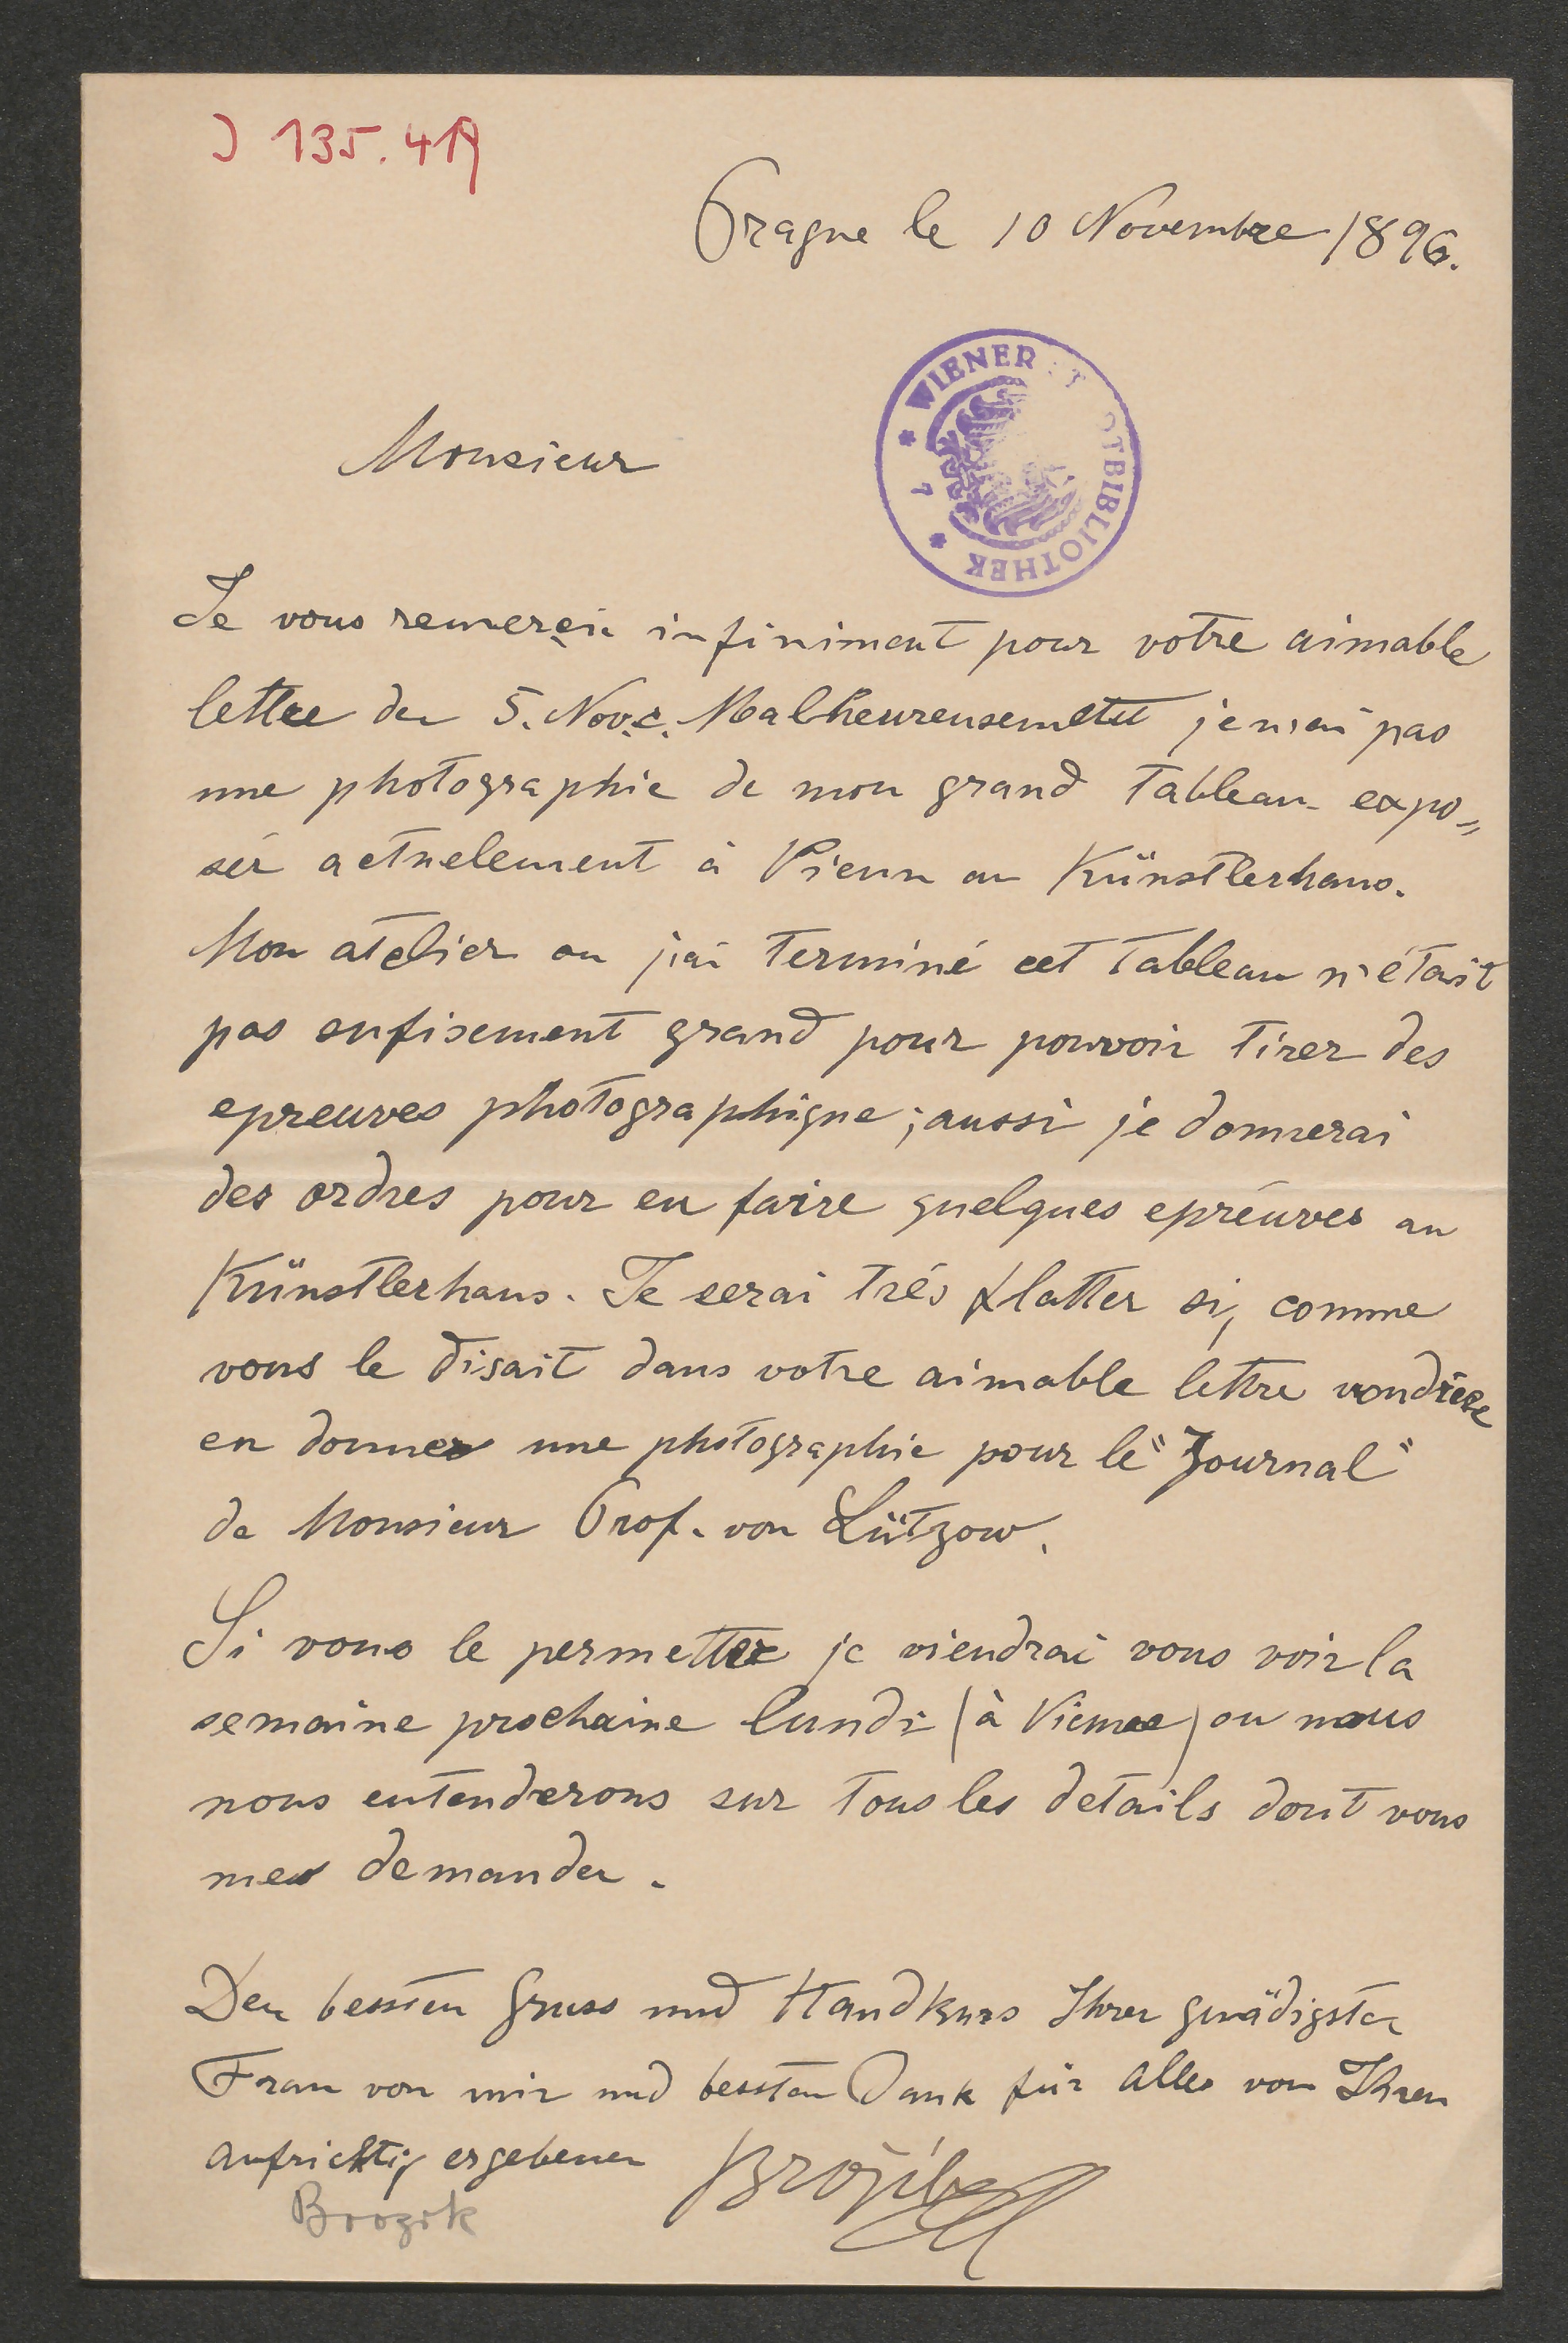 J 135.419
Prague le 10 Novembre 1896.
WIENER STADTBIBLIOTHEK
Monsieur
Je vous remercie infiniment pour votre aimable
lettre du 5. Nov. c. Malheureusement je n'ai pas
une photographie de mon grand tableau expo=
sér actuelement à Vienn au Künstlerhaus.
Mon atelier ou j'ai terminé cet tableau n'était
pas sufisement grand pour pouvoir tirer des
epreuves photographique; aussi je donnerai
des ordres pour en faire quelques epréuves au
Künstlerhaus. Je serai trés flatter si, comme
vous le disait dans votre aimable lettre voudriere
en donner une photographie pour le "Journal"
de Monsieur Prof. von Lützow.
Si vous le permetter je viendrai vous voir la
semaine prochaine lundi (à Vienne) ou nous
nous entenderons sur tous les details dont vous
me demander.
Den bessten Gruss und Handkuss Ihrer gnädigsten
Frau von mir und bessten Dank für alles von Ihren
aufrichtig ergebenen Brožík
Brozik